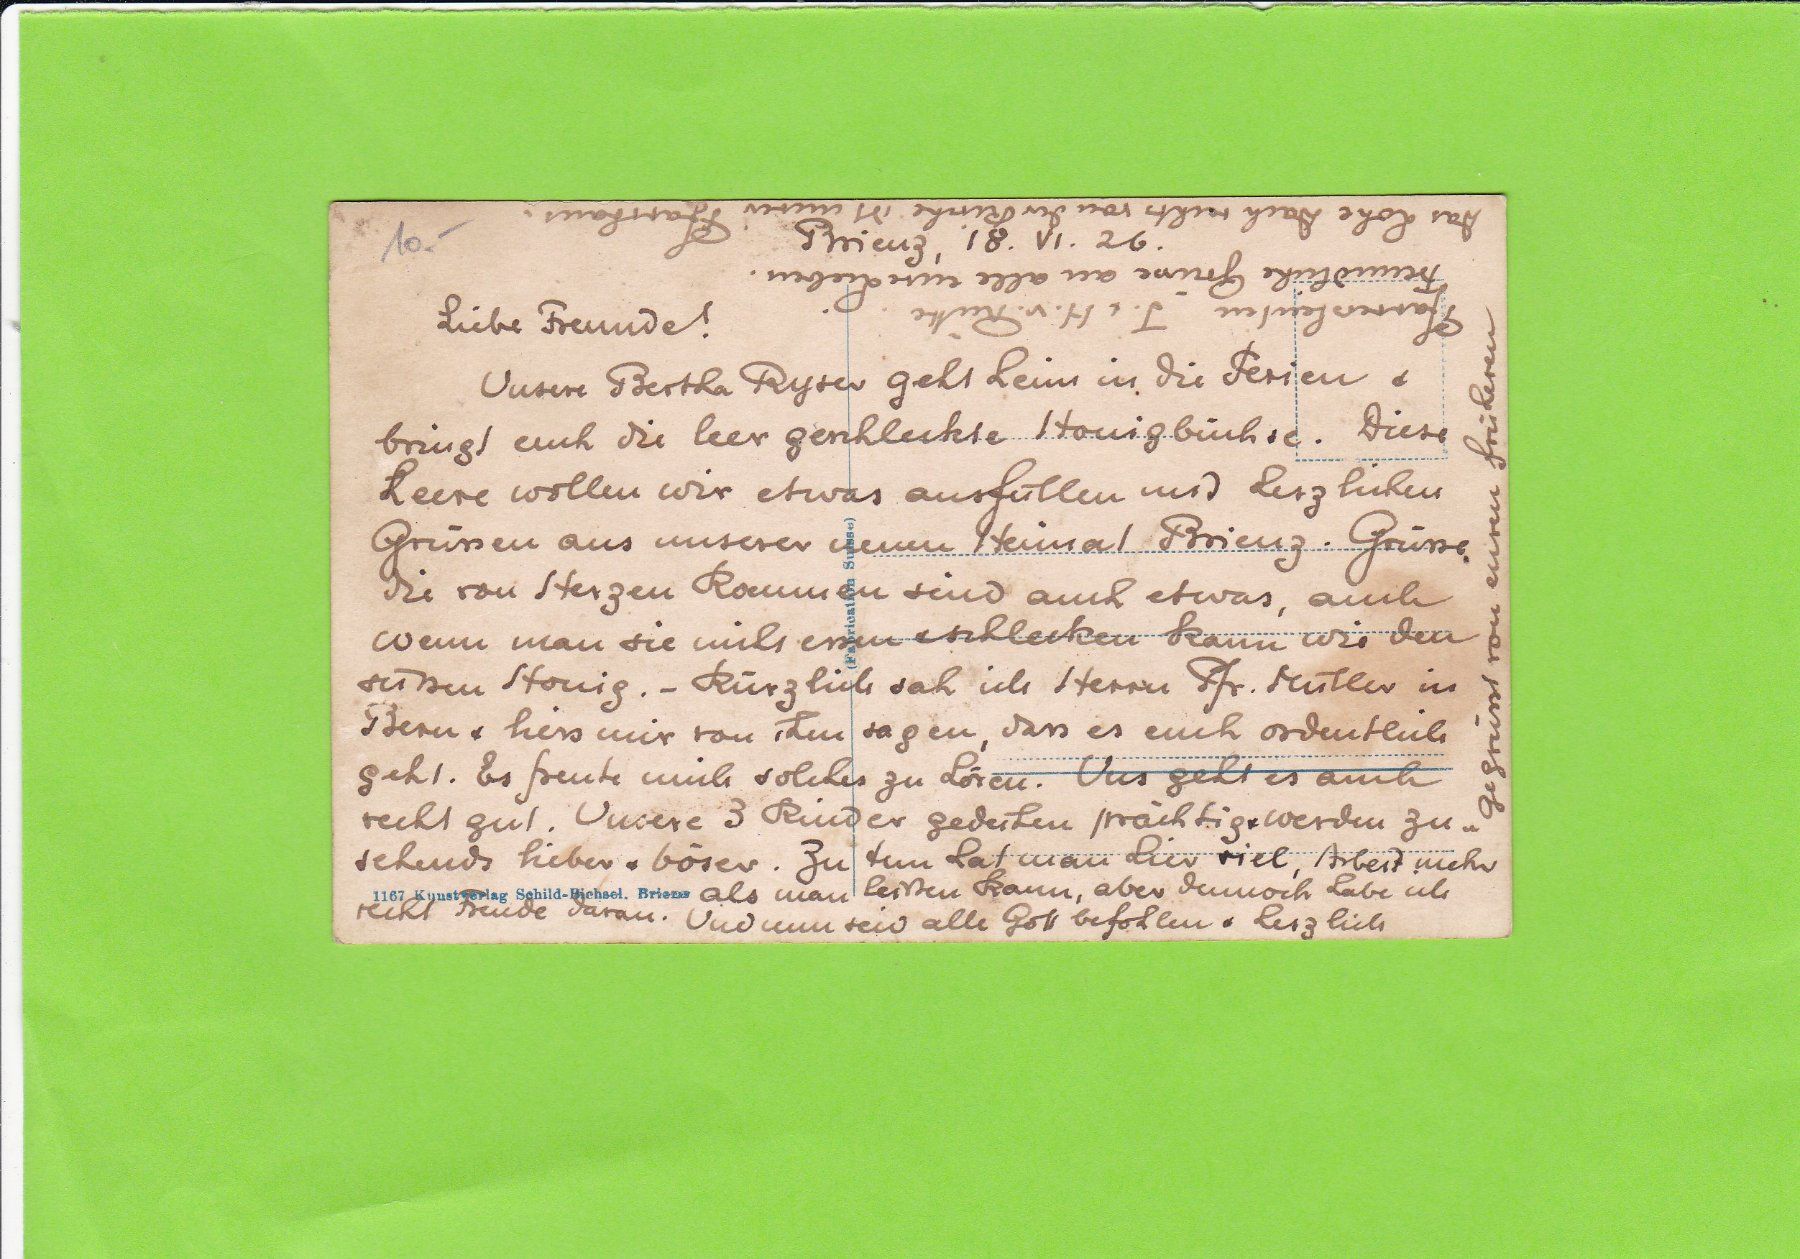 10.-
Brienz, 18. VI. 26.
Liebe Freunde!
Unsere Bertha Ryser geht heim in die Ferien &
bringt euch die leer geschleckte Honigbüchse. Diese
Leere wollen wir etwas ausfüllen mit herzlichen
Grüssen aus unserer neuen Heimat Brienz. Grüsse,
die von Herzen kommen sind auch etwas, auch
wenn man sie nicht essen & schlecken kann wie den
süssen Honig. - Kürzlich sah ich Herrn Pfr. Müller in
Bern & liess mir von ihm sagen, dass es euch ordentlich
geht. Es freute mich solches zu hören. Uns geht es auch
recht gut. Unsere 3 Kinder gedeihen prächtig & werden zu-
sehends lieber & böser. Zu tun hat man hier viel, Arbeit mehr
als man leisten kann, aber dennoch habe ich
recht Freude daran. Und nun seid alle Gott befohlen & herzlich
gegrüsst von euren früheren
Pfarrersleuten J. & H. v. Rütte
Freundliche Grüsse an alle eure Lieben.
Das hohe Dach rechts von der Kirche ist unser Pfarrhaus.
(Fabrication Suisse)
1167 Kunstverlag Schild-Bichsel. Brienz